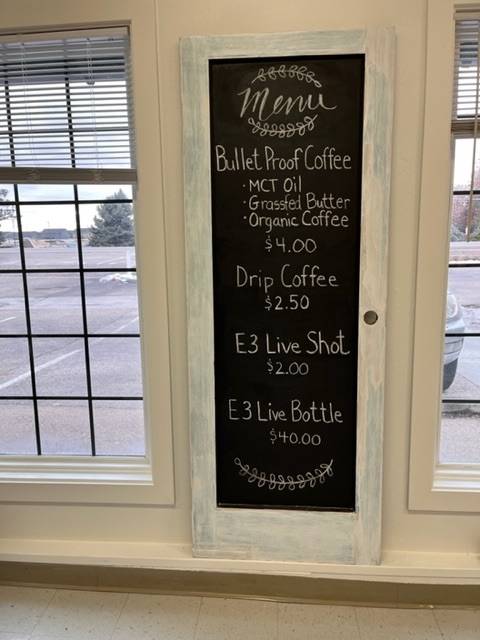 Menu
Bullet Proof Coffee
· MCT Oil
· Grassfed Butter
· Organic Coffee
$4.00
Drip Coffee
$2.50
E3 Live Shot
$2.00
E3 Live Bottle
$40.00